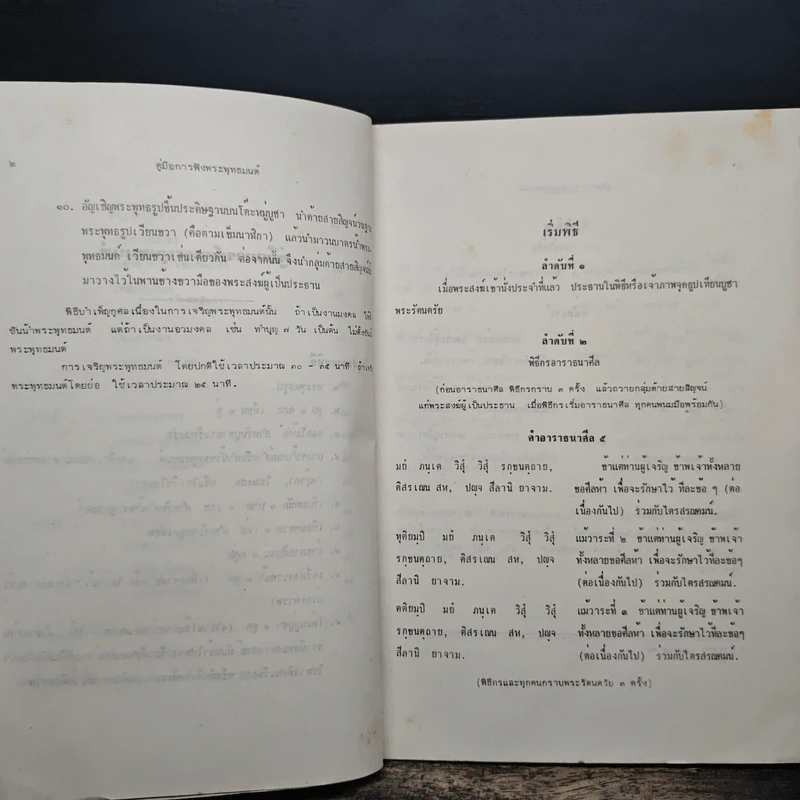 ๒
คู่มือการฟังพระพุทธมนต์
๑๐. อัญเชิญพระพุทธรูปขึ้นประดิษฐานบนโต๊ะหมู่บูชา นำด้ายสายสิญจน์วนฐาน
พระพุทธรูปเวียนขวา (คือตามเข็มนาฬิกา) แล้วนำมาวนบาตรน้ำพระ
พุทธมนต์ เวียนขวาเช่นเดียวกัน ต่อจากนั้น จึงนำกลุ่มด้ายสายสิญจน์
มาวางไว้ในพานข้างขวามือของพระสงฆ์ผู้เป็นประธาน
พิธีบำเพ็ญกุศลเนื่องในการเจริญพระพุทธมนต์นั้น ถ้าเป็นงานมงคล
ขันน้ำพระพุทธมนต์ แต่ถ้าเป็นงานอวมงคล เช่น ทำบุญ ๗ วัน เป็นต้น ไม่ตั้งขันน้ำ
พระพุทธมนต์
การเจริญพระพุทธมนต์ โดยปกติใช้เวลาประมาณ ๓๐ - ๓๕ นาที
พระพุทธมนต์โดยย่อ ใช้เวลาประมาณ ๒๕ นาที.
เริ่มพิธี
ลำดับที่ ๑
เมื่อพระสงฆ์เข้านั่งประจำที่แล้ว ประธานในพิธีหรือเจ้าภาพจุดธูปเทียนบูชา
พระรัตนตรัย
ลำดับที่ ๒
พิธีกรอาราธนาศีล
(ก่อนอาราธนาศีล พิธีกรกราบ ๓ ครั้ง แล้วถวายกลุ่มด้ายสายสิญจน์
แก่พระสงฆ์ผู้เป็นประธาน เมื่อพิธีกรเริ่มอาราธนาศีล ทุกคนพนมมือพร้อมกัน)
คำอาราธนาศีล ๕
มยํ ภนฺเต วิสุํ วิสุํ รกฺขนตฺถาย, ข้าแต่ท่านผู้เจริญ ข้าพเจ้าทั้งหลาย
ติสรเณน สห, ปญฺจ สีลานิ ยาจาม. ขอศีลห้า เพื่อจะรักษาไว้ ทีละข้อ ๆ (ต่อ
เนื่องกันไป) ร่วมกับไตรสรณคมน์.
ทุติยมฺปิ มยํ ภนฺเต วิสุํ วิสุํ แม้วาระที่ ๒ ข้าแต่ท่านผู้เจริญ ข้าพเจ้า
รกฺขนตฺถาย, ติสรเณน สห, ปญฺจ ทั้งหลายขอศีลห้า เพื่อจะรักษาไว้ทีละข้อๆ
สีลานิ ยาจาม. (ต่อเนื่องกันไป) ร่วมกับไตรสรณคมน์.
ตติยมฺปิ มยํ ภนฺเต วิสุํ วิสุํ แม้วาระที่ ๓ ข้าแต่ท่านผู้เจริญ ข้าพเจ้า
รกฺขนตฺถาย, ติสรเณน สห, ปญฺจ ทั้งหลายขอศีลห้า เพื่อจะรักษาไว้ทีละข้อๆ
สีลานิ ยาจาม. (ต่อเนื่องกันไป) ร่วมกับไตรสรณคมน์.
(พิธีกรและทุกคนกราบพระรัตนตรัย ๓ ครั้ง)